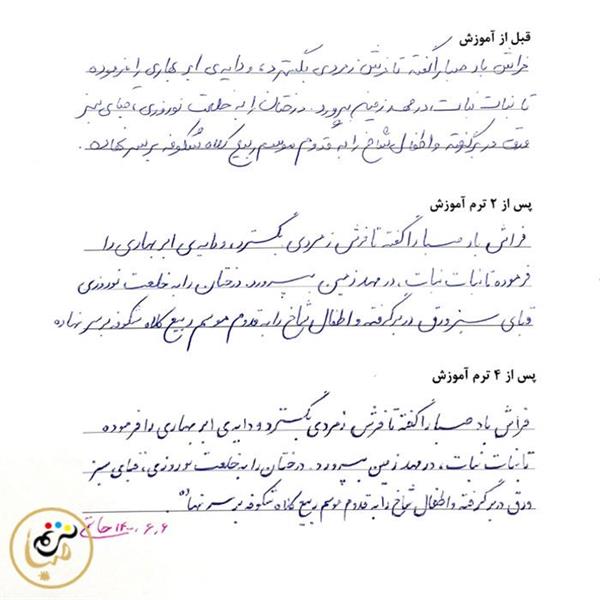 قبل از آموزش
فراش باد صبا را گفته تا فرش زمردی بگسترد، و دایه‌ی ابر بهاری را فرموده
تا نبات نبات، در مهد زمین بپرورد. درختان را به خلعت نوروزی، قبای سبز
ورق در برگرفته و اطفال شاخ را به قدوم موسم ربیع کلاه شکوفه بر سر نهاده.
پس از ۲ ترم آموزش
فراش باد صبا را گفته تا فرش زمردی بگسترد، و دایه‌ی ابر بهاری را
فرموده تا نبات نبات، در مهد زمین بپرورد. درختان را به خلعت نوروزی
قبای سبز ورق در برگرفته و اطفال شاخ را به قدوم موسم ربیع کلاه شکوفه بر سر نهاده
پس از ۴ ترم آموزش
فراش باد صبا را گفته تا فرش زمردی بگسترد و دایه‌ی ابر بهاری را فرموده
تا نبات نبات، در مهد زمین بپرورد. درختان را به خلعت نوروزی، قبای سبز
ورق در برگرفته و اطفال شاخ را به قدوم موسم ربیع کلاه شکوفه بر سر نهاده.
۱۴۰۰.۶.۶